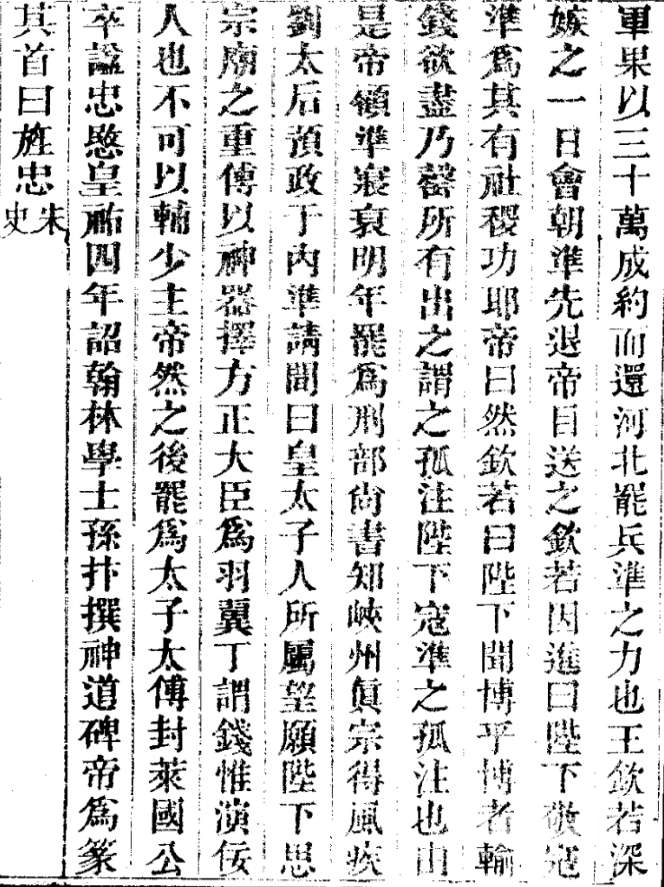 軍果以三十萬成約而還河北罷兵準之力也王欽若深
嫉之一日會朝準先退帝目送之欽若因進曰陛下敬寇
準爲其有社稷功耶帝曰然欽若曰陛下聞博乎博者輸
錢欲盡乃罄所有出之謂之孤注陛下寇準之孤注也由
是帝顧準寖衰明年罷爲刑部尚書知峽州眞宗得風疾
劉太后預政于內準請間曰皇太子人所屬望願陛下思
宗廟之重傳以神器擇方正大臣爲羽翼丁謂錢惟演佞
人也不可以輔少主帝然之後罷爲太子太傅封萊國公
卒諡忠愍皇祐四年詔翰林學士孫抃撰神道碑帝爲篆
其首曰旌忠宋史